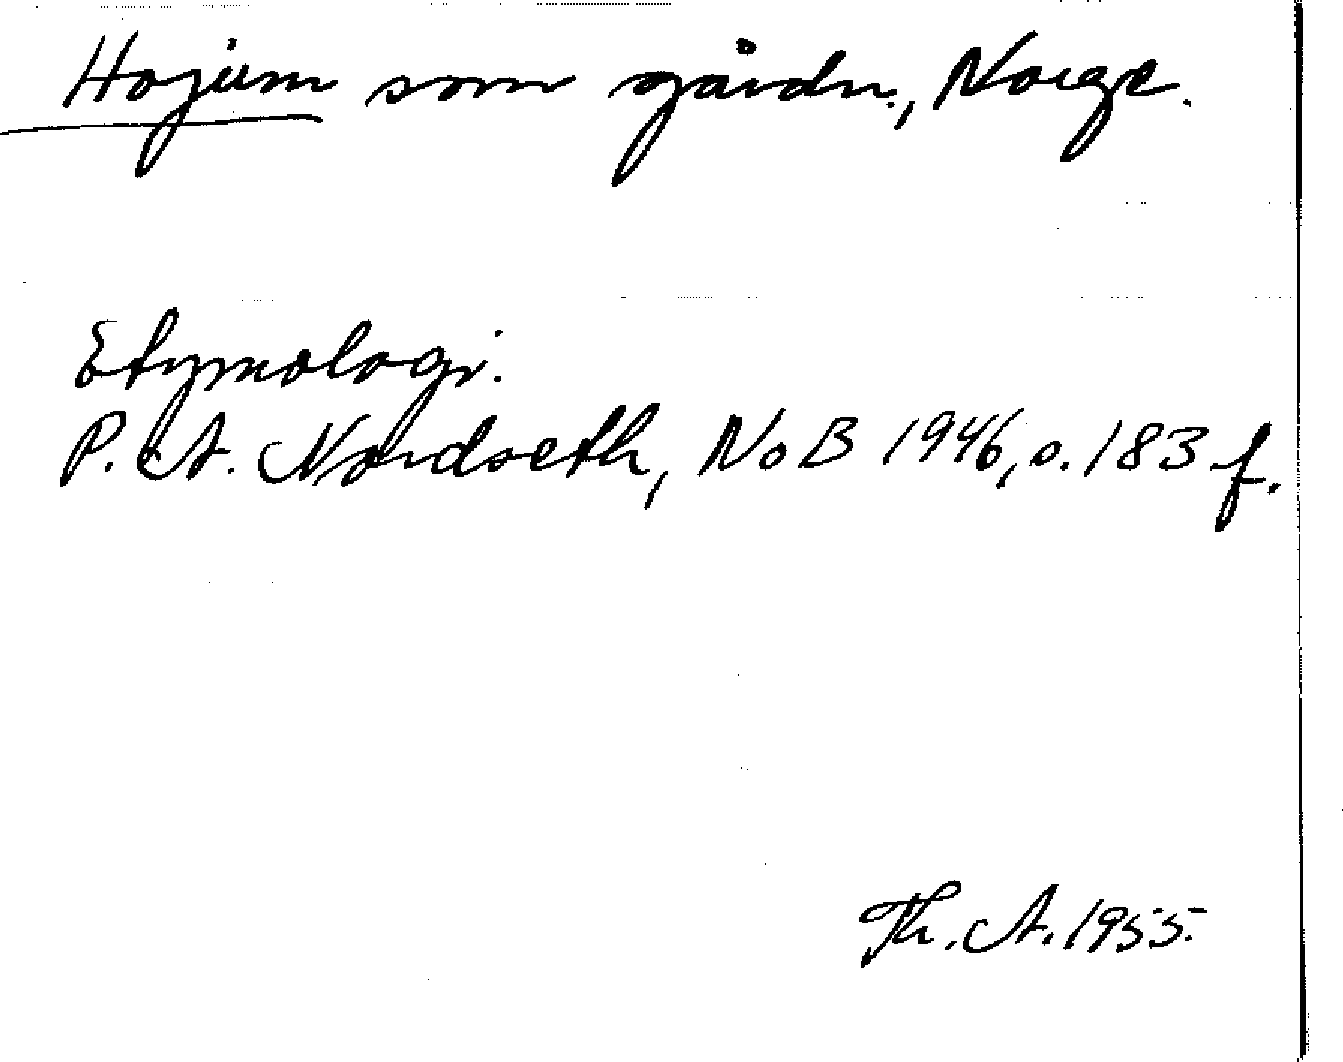 Hojum som gårdn., Norge.
Etymologi.
P. A. Nordseth, NoB 1946, s. 183 f.
Th. A. 1955.